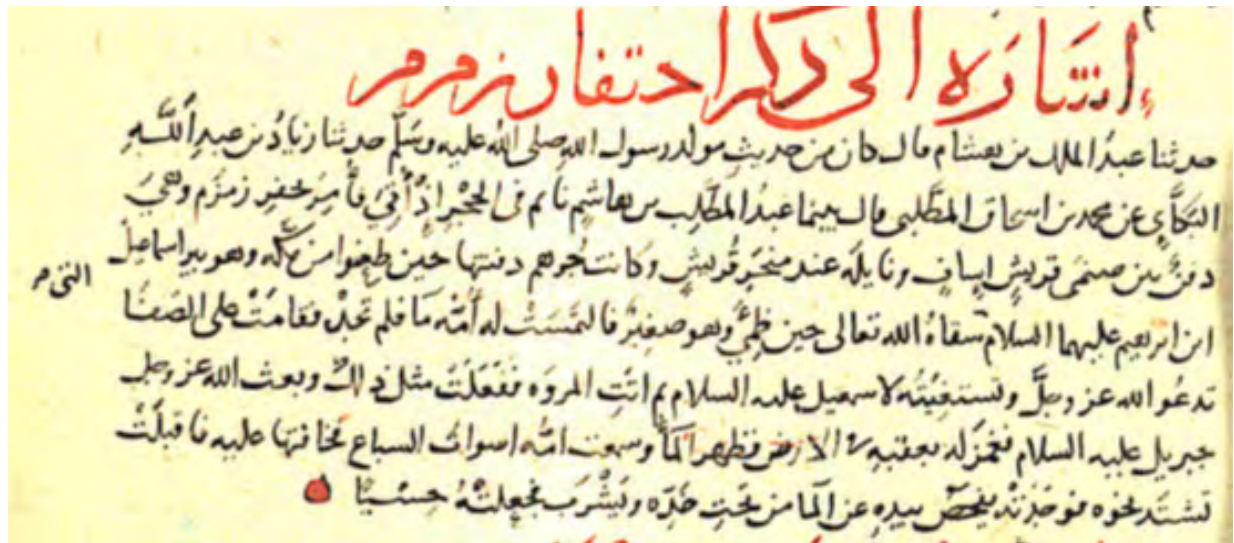 إشَارَه الى ذكر احتفار زمزم
حدثنا عبدُ الملك بن هشام قال كان من حديث مولد رسول الله صلى الله عليه وسَلّم حدثنا زيادُ بن عبدِ اَللَّهِ
البَكَّأيِ عن محمد بن اسحاق المطَّلبى قال بينما عبدُ المطَّلِب بن هاشمٍ نائم فى الحِجْرِ اِذْ أُتِيَ فأُمِرَ بحفرِ زمزم وهِيَ
دفنٌ بين صنمَى قريشٍ اِسافٍ ونايلَه عند منحَرِ قُريشٍ وكانت جُرهم دفنتها حين ظعنوا من مكّه وهو بير اسماعيل
التى م
ابن ابرهيم عليهما السلام سقاهُ الله تعالى حين ظمِئَ وهو صغيرٌ فالتمسَتْ له أمّه مَا فلم تجدْ فقامَتْ على الصّفَا
تدعُو الله عز وجلَّ وتستغيثُه لاسمعيل عليه السلام ثم اتتِ المروَه ففعَلَتْ مثل ذلك وبعث الله عز وجل
جبريل عليه السلام فهَمَزَ له بعقبهِ فى الارض فظهر اَلمآ وسمعت امّه اصوات السباع فخافتها عليه فاقبلَتْ
تشتد نحوه فوجَدَتْه يفحَصُ بيدهِ عن اَلما من تحتِ خَدِّه ويَشْرَب فجعلَتْهُ حِسْيًا